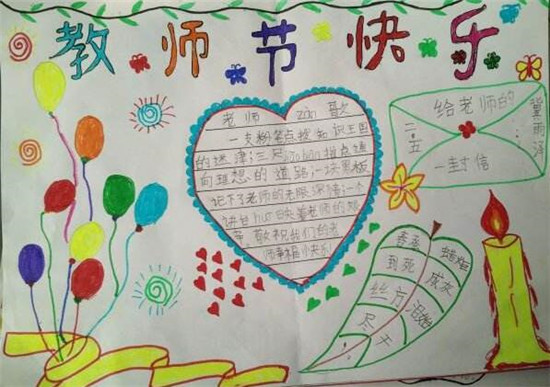 教师节快乐
老师 zàn
一支粉笔点拨知识王国
的迷津;三尺指点通
向理想的道路;一块黑板
记下老师的无限深情;一个
讲台huī映着老师的艰
辛,敬祝我们的老
师幸福快乐!
给老师的
一封信
二·五
冀雨泽
春蚕
到死
丝方
尽
蜡炬
成灰
泪始
干